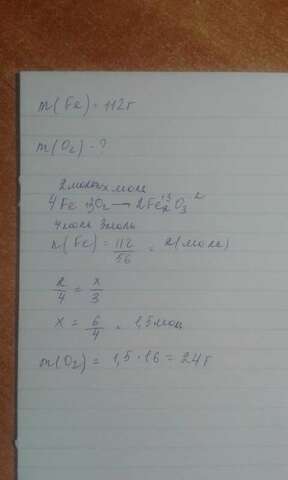 m(Fe) = 112г
m(O₂) - ?
2моль x моль
4Fe 3O₂ → 2Fe₂⁺³O₃²
4моль 3моль
n(Fe) = 112/56 = 2(моль)
2/4 = x/3
x = 6/4 = 1,5 мол
m(O₂) = 1,5 · 16 = 24г